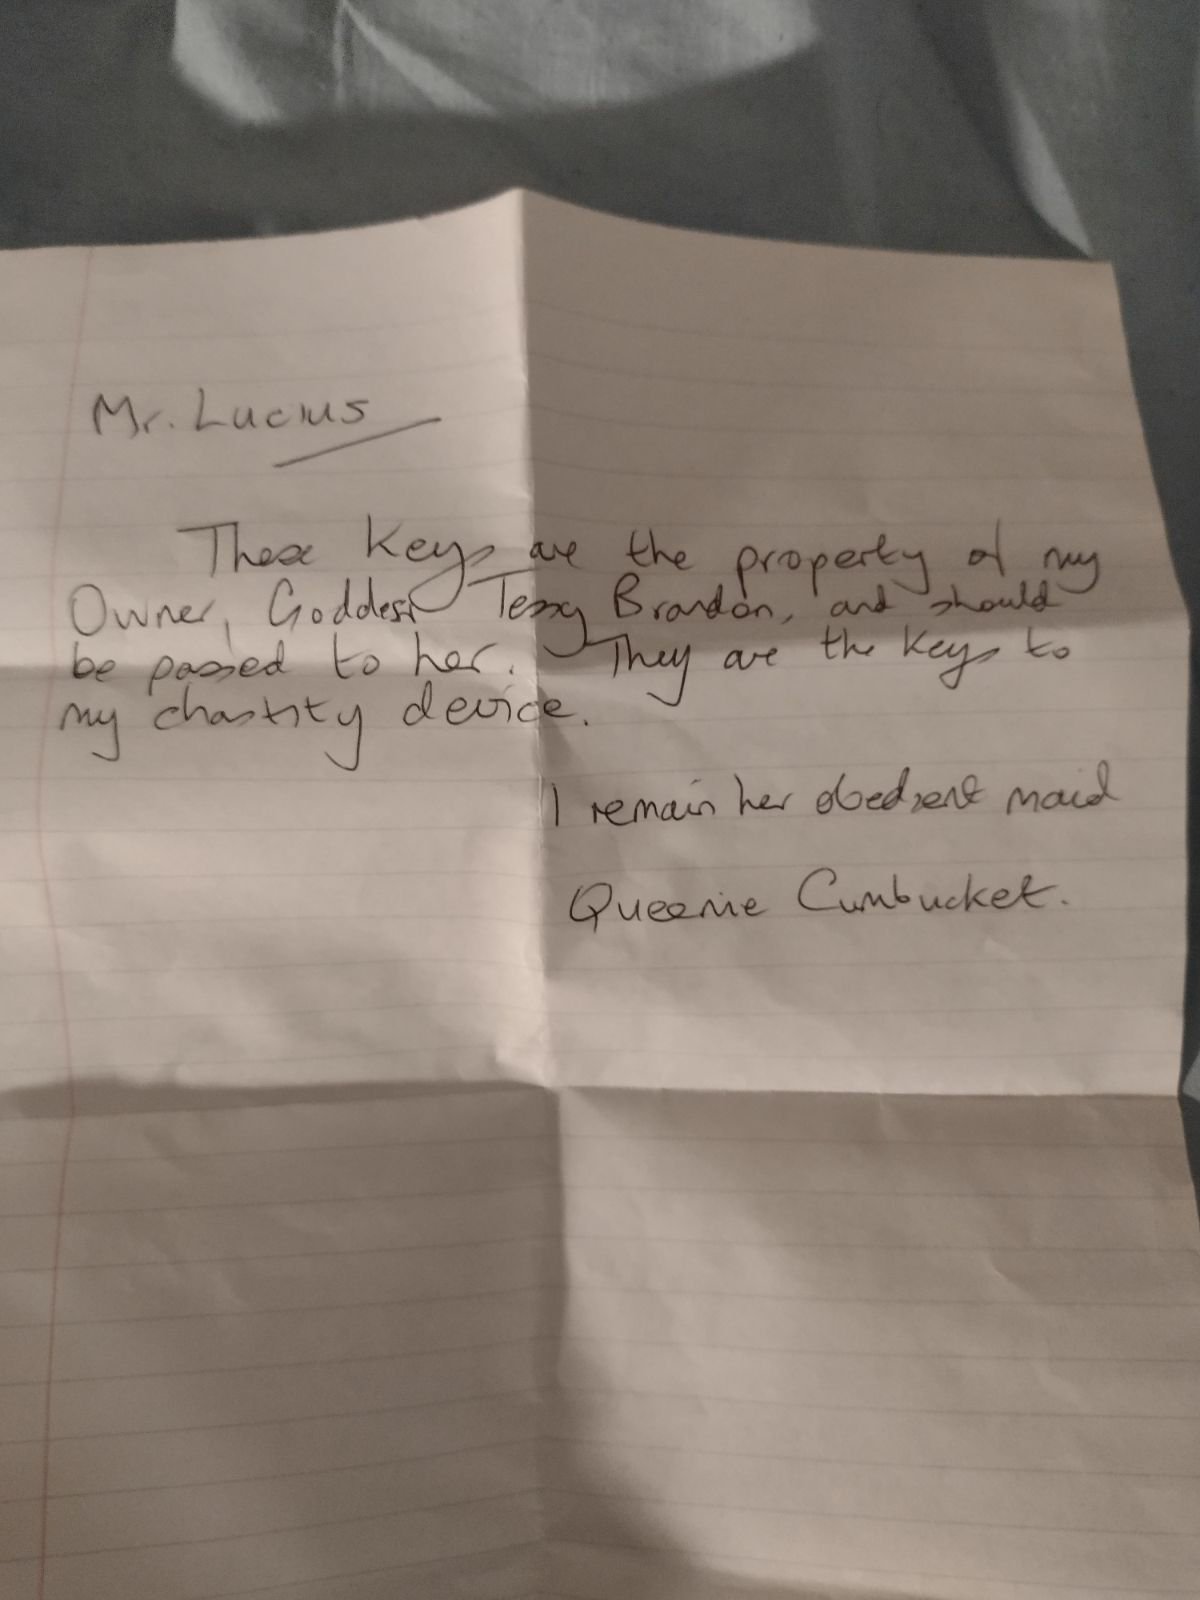 Mr. Lucius
These keys are the property of my
Owner, Goddess Tessy Brandon, and should
be passed to her. They are the keys to
my chastity device.
I remain her obedient maid
Queenie Cumbucket.